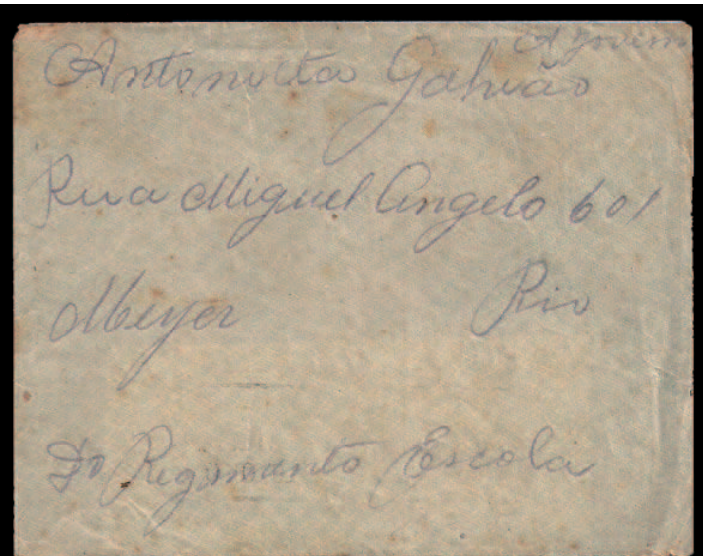 Antonieta Galvão
Rua Miguel Angelo 601
Meyer Rio
Do Regimento Escola